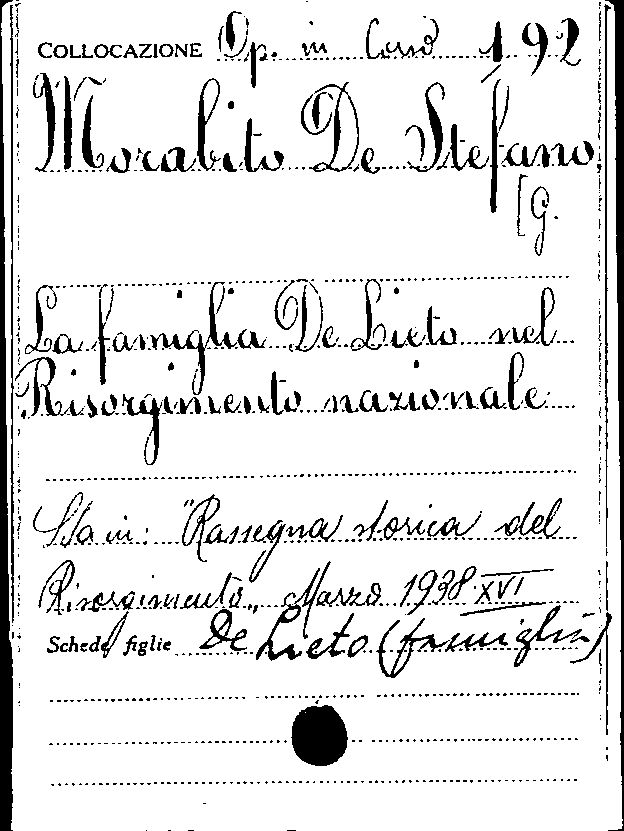 COLLOCAZIONE Op. in Cons 192
Morabito De Stefano
[G.
La famiglia De Lieto nel
Risorgimento nazionale
Sta in: "Rassegna storica del
Risorgimento„ Marzo 1938 XVI
Schede figlie De Lieto (famiglia)